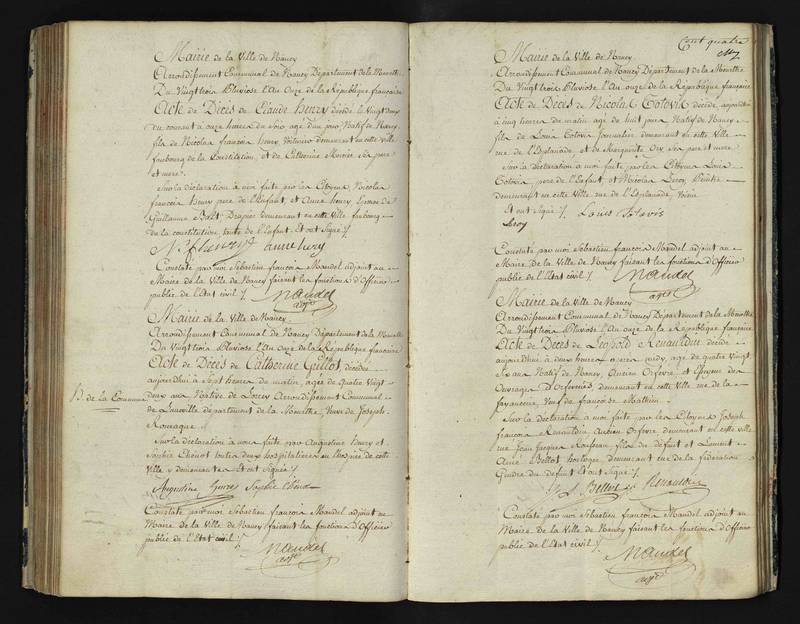 Mairie de la Ville de Nancy
Arrondissement Communal de Nancy Département de la Meurthe
Du Vingt trois Pluviose l'An Onze de la République française
Acte de Décès de Claude Henry décédé le Vingt deux
du courant à onze heures du soir agé d'un jour Natif de Nancy,
fils de Nicolas françois henry Voiturier demeurant en cette ville
faubourg de la Constitution, et de Catherine ses pere
et mere.
Sur la déclaration à moi faite par les Citoyens Nicolas
françois henry pere de l'Enfant, et Anne henry, Epouse de
Guillaume Drapier demeurant en cette ville faubourg
de la constitution tante de l'Enfant. Et ont Signé ⁒
N. f henry anne henry
Constaté par moi Sébastien françois Mandel adjoint au
Maire de la Ville de Nancy faisant les fonctions d'Officier
public de l'Etat civil ⁒
Mandel
adjt
Mairie de la Ville de Nancy
Arrondissement Communal de Nancy Département de la Meurthe
Du Vingt trois Pluviose l'An Onze de la République française
Acte de Décès de Catherine Gillot décédée
aujourd'hui à Sept heures du matin, agée de Quatre Vingt
B. de la Commune
deux ans Native de Arrondissement Communal
de Luneville département de la Meurthe, Veuve de Joseph
Sur la déclaration à nous faite par Augustine henry et
Sophie Chenot toutes deux hospitalières au hospice de cette
Ville y demeurantes Et ont Signé ⁒
Augustine Sophie Chenot
Constaté par moi Sébastien françois Mandel adjoint au
Maire de la Ville de Nancy faisant les fonctions d'Officier
public de l'Etat civil ⁒
Mandel
adjt
Cent quatre
Mairie de la Ville de Nancy
Arrondissement Communal de Nancy Département de la Meurthe
Du Vingt trois Pluviose l'An onze de la République française
Acte de Décès de Nicolas décédé, aujourd'hui
à cinq heures du matin agé de huit jours Natif de Nancy
fils de Louis Journalier demeurant en cette Ville
rue de l'Esplanade et de Marguerite ses pere et mere
Sur la déclaration à moi faite par les Citoyens Louis
pere de l'Enfant, et Nicolas Leroy
demeurant en cette Ville rue de l'Esplanade
Et ont Signé ⁒ Louis
Leroy
Constaté par moi Sébastien françois Mandel adjoint au
Maire de la Ville de Nancy faisant les fonctions d'Officier
public de l'Etat civil ⁒
Mandel
adjt
Mairie de la Ville de Nancy
Arrondissement Communal de Nancy Département de la Meurthe
Du Vingt trois Pluviose l'An onze de la République française
Acte de Décès de Léopold Renauldin décédé
aujourd'hui à deux heures après midy, agé de quatre Vingt
Six ans Natif de Nancy, Ancien Orfevre et Essayeur des
Ouvrages D'Orfevrerie demeurant en cette Ville rue de la
fayancerie, Veuf de françoise Mathieu.
Sur la déclaration à moi faite par les Citoyens Joseph
françois Renauldin Ancien Orfevre demeurant en cette ville
rue Jean Jacques Rousseau, fils du défunt et Laurent
Aimé Bellot horloger, demeurant rue de la fédération
Gendre du défunt et ont Signé ⁒
Bellot Renauldin
Constaté par moi Sébastien françois Mandel adjoint au
Maire de la Ville de Nancy faisant les fonctions d'Officier
public de l'Etat civil ⁒
Mandel
adjt